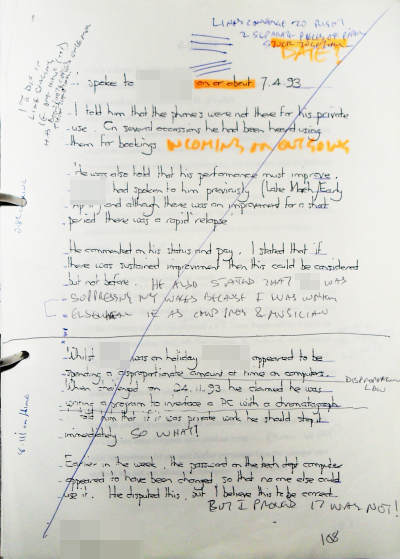 LINES CONVERGE TO RIGHT
2 SEPARATE PIECES OF PAPER
STUCK TOGETHER
DATE?
spoke to on or about 7.4.93
I told him that the phones were not there for his private
use. On several occassions he had been heard using
them for bookings INCOMING OR OUTGOING
He was also told that his performance must improve.
had spoken to him previously (Late March/Early
April) and although there was an improvement for a short
period there was a rapid relapse
He commented on his status and pay. I stated that if
there was sustained improvement then this could be considered
but not before. HE ALSO STATED THAT WAS
SUPPRESSING MY WAGES BECAUSE I WAS WORKING
ELSEWHERE IE AS COMP PROG & MUSICIAN
Whilst was on holiday appeared to be
spending a disproportionate amount of time on computers.
When challenged on 24.11.93 he claimed he was
writing a program to interface a PC with a chromatograph
I told him that if it was private work he should stop it
immediately. SO WHAT!
Earlier in the week, the password on the tech dept computer
appeared to have been changed so that no one else could
use it. He disputed this, but I believe this to be correct.
BUT I PROVED IT WAS NOT!
108